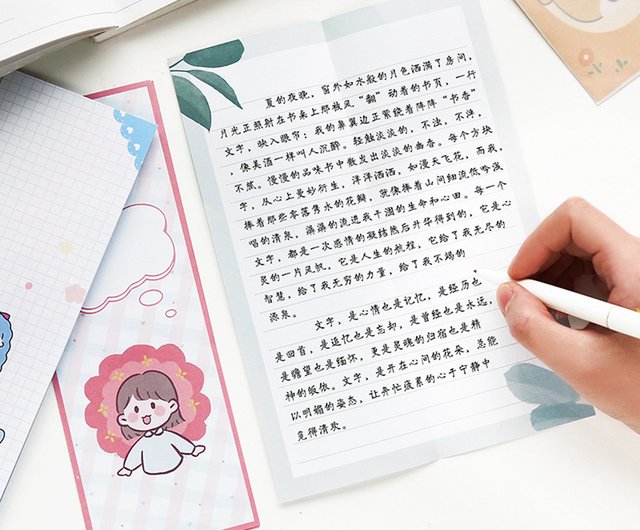 夏的夜晚，窗外如水般的月色洒满了房间，
月光正照射在书桌上那被风“翻”动着的书页，一行
文字，映入眼帘；我的鼻翼边正萦绕着阵阵“书香”
，像美酒一样叫人沉醉。轻触淡淡的，不浊，不浮，
不腻。慢慢的品味书中散发出淡淡的幽香。每个方块
字，从心上曼妙衍生，洋洋洒洒，如漫天飞花，而我，
捧着那些零落隽永的花瓣，就像捧着山间细流低吟浅
唱的清泉，潺潺的流进我干涸的生命和心田。每一个
文字，都是一次感情的凝结然后升华得到的，它是心
灵的一片风帆，它是人生的航程，它给了我无尽的
智慧，给了我无穷的力量，给了我不竭的
源泉。
文字，是心情也是记忆，是经历也
是回首，是追忆也是忘却，是曾经也是永远，
是瞻望也是缅怀，更是灵魂的归宿也是精
神的皈依。文字，是开在心间的花朵，总能
以明媚的姿态，让奔忙疲累的心于宁静中
觅得清欢。